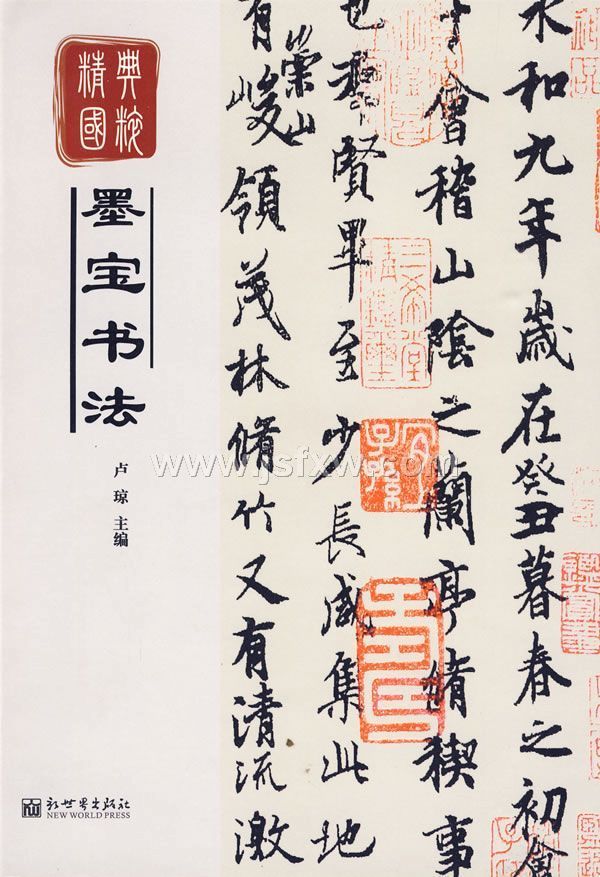 精典
國粹
墨宝书法
卢琼 主编
新世界出版社
NEW WORLD PRESS
永和九年歲在癸丑暮春之初會
于會稽山陰之蘭亭脩禊事
也羣賢畢至少長咸集此地
有崇山峻領茂林脩竹又有清流激
三希堂精鑑璽
宜子孫
www.jsfxw.com